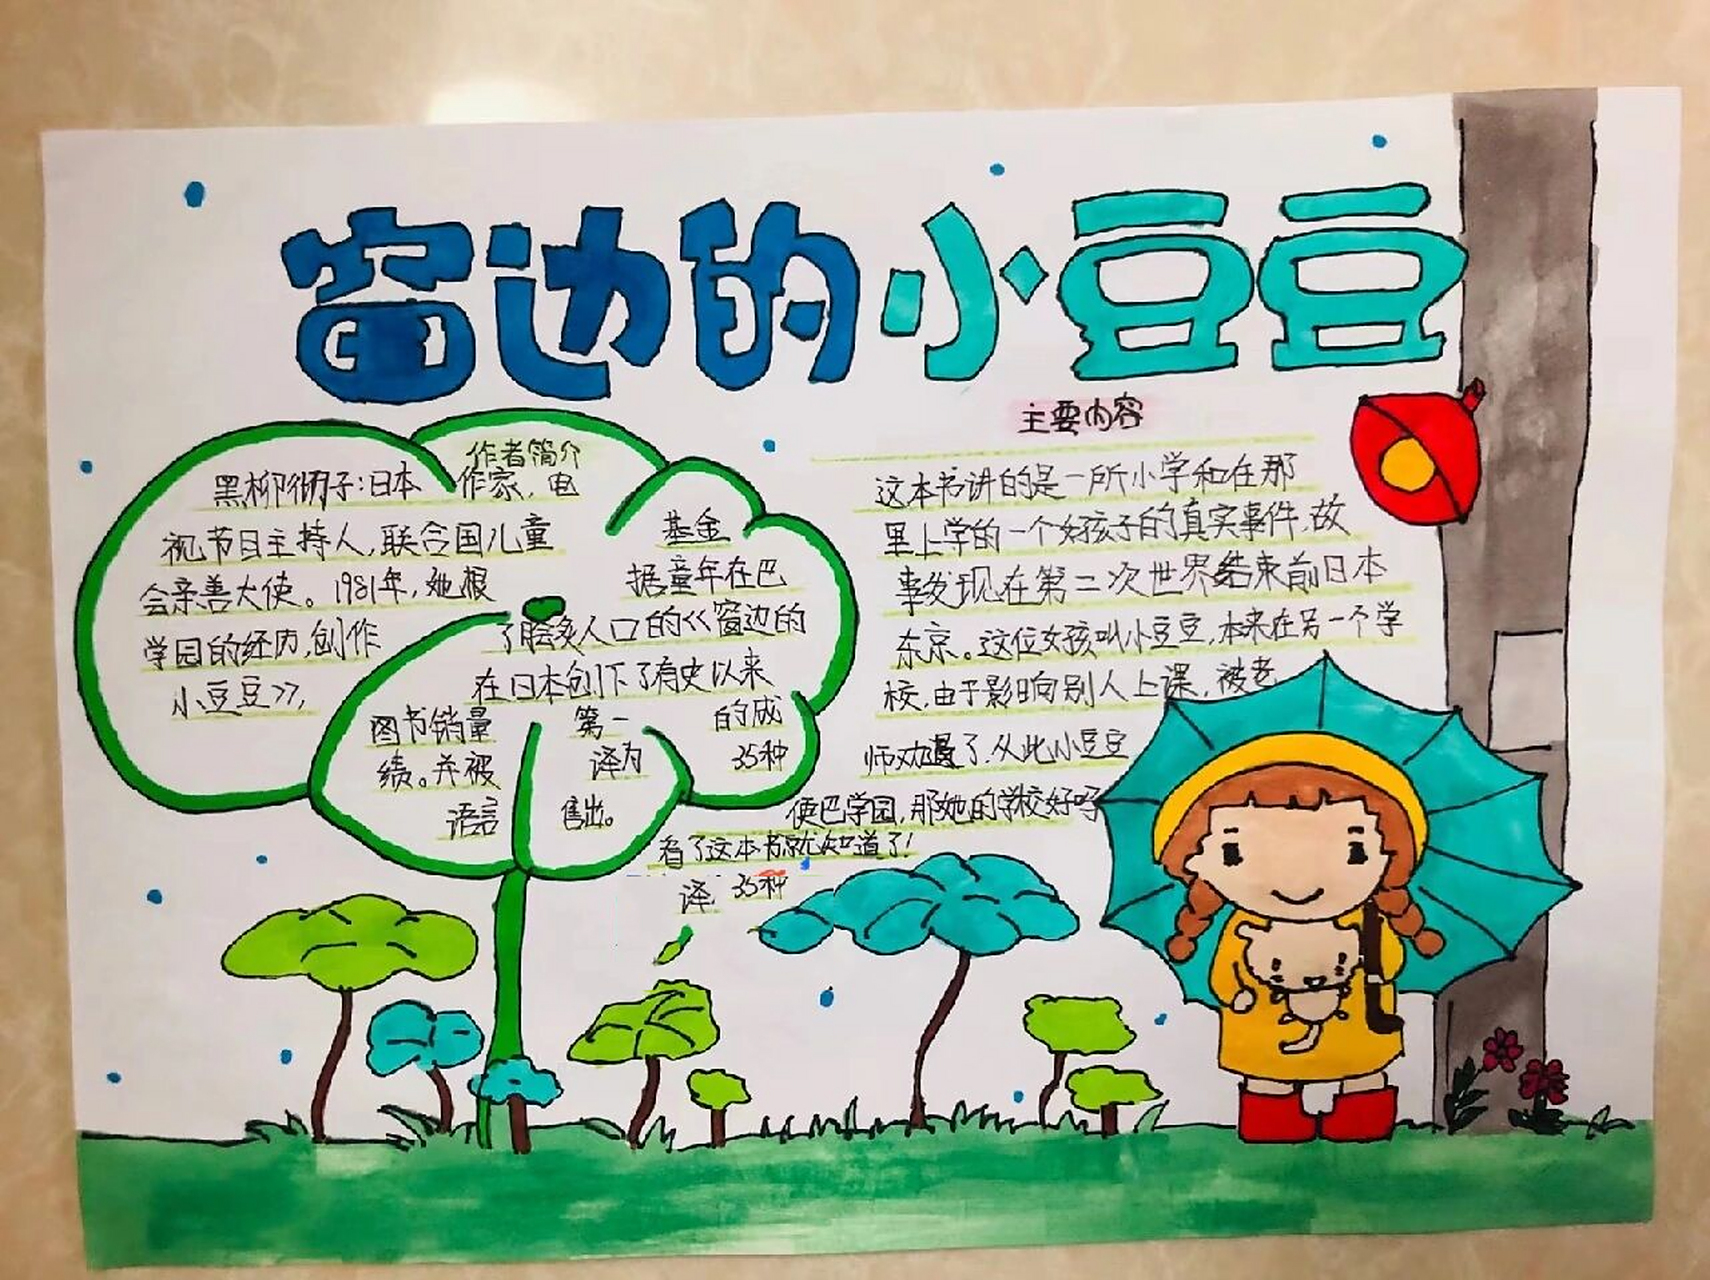 窗边的小豆豆
作者简介
黑柳彻子:日本 作家,电
视节目主持人,联合国儿童 基金
会亲善大使。1981年,她根 据童年在巴
学园的经历,创作 了脍炙人口的《窗边的
小豆豆》, 在日本创下了有史以来
图书销量 第一 的成
绩。并被 译为 35种
语言 售出。
主要内容
这本书讲的是一所小学和在那
里上学的一个女孩子的真实事件,故
事发现在第二次世界结束前日本
东京。这位女孩叫小豆豆,本来在另一个学
校,由于影响别人上课,被老
师劝退了,从此小豆豆
便巴学园,那她的学校好吗
看了这本书就知道了!
译 35种